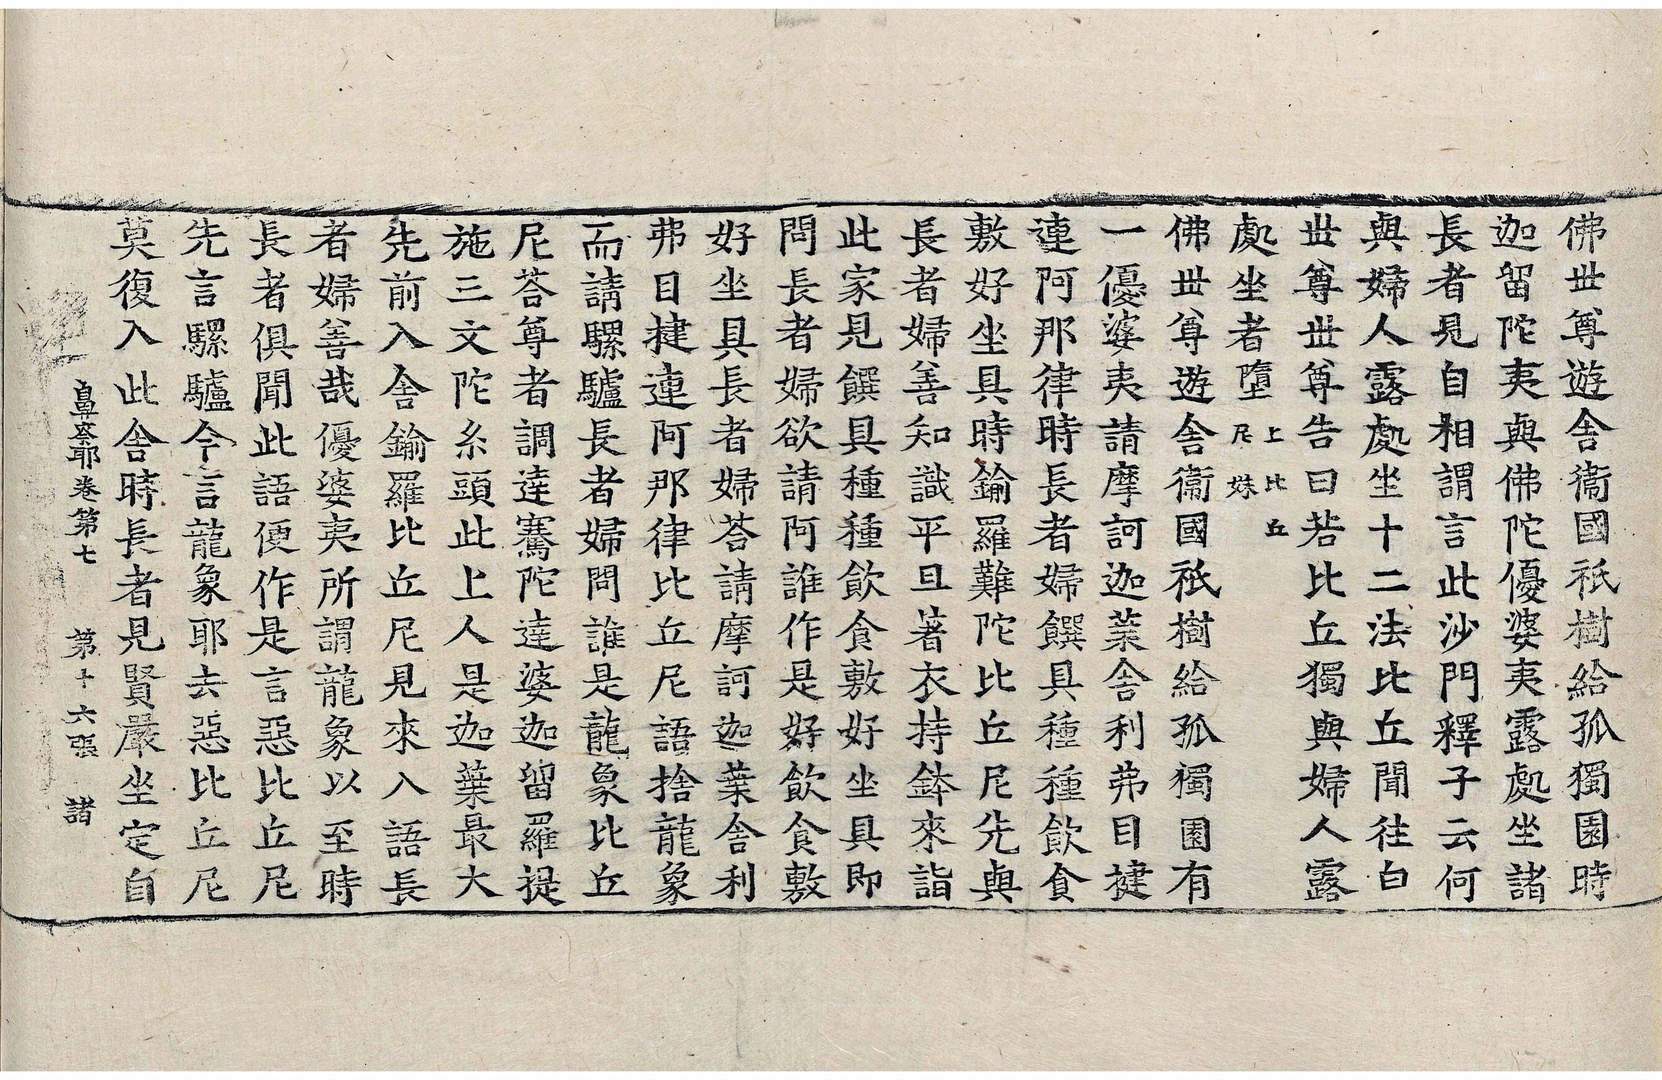 佛世尊遊舎衞國祇樹給孤獨園時
迦留陀夷與佛陀優婆夷露處坐諸
長者見自相謂言此沙門釋子云何
與婦人露處坐十二法比丘聞往白
世尊世尊告曰若比丘獨與婦人露
處坐者墮上比丘尼妹
佛世尊遊舎衞國祇樹給孤獨園有
一優婆夷請摩訶迦葉舎利弗目揵
連阿那律時長者婦饌具種種飲食
敷好坐具時鍮羅難陀比丘尼先與
長者婦善知識平旦著衣持鉢來詣
此家見饌具種種飲食敷好坐具即
問長者婦欲請阿誰作是好飲食敷
好坐具長者婦荅請摩訶迦葉舎利
弗目揵連阿那律比丘尼語捨龍象
而請騾驢長者婦問誰是龍象比丘
尼荅尊者調達騫陀達婆迦留羅提
施三文陀糸頭此上人是迦葉最大
先前入舎鍮羅比丘尼見來入語長
者婦善哉優婆夷所謂龍象以至時
長者俱聞此語便作是言惡比丘尼
先言騾驢今言龍象耶去惡比丘尼
莫復入此舎時長者見賢嚴坐定自
鼻奈耶卷第七　第十六張　諸